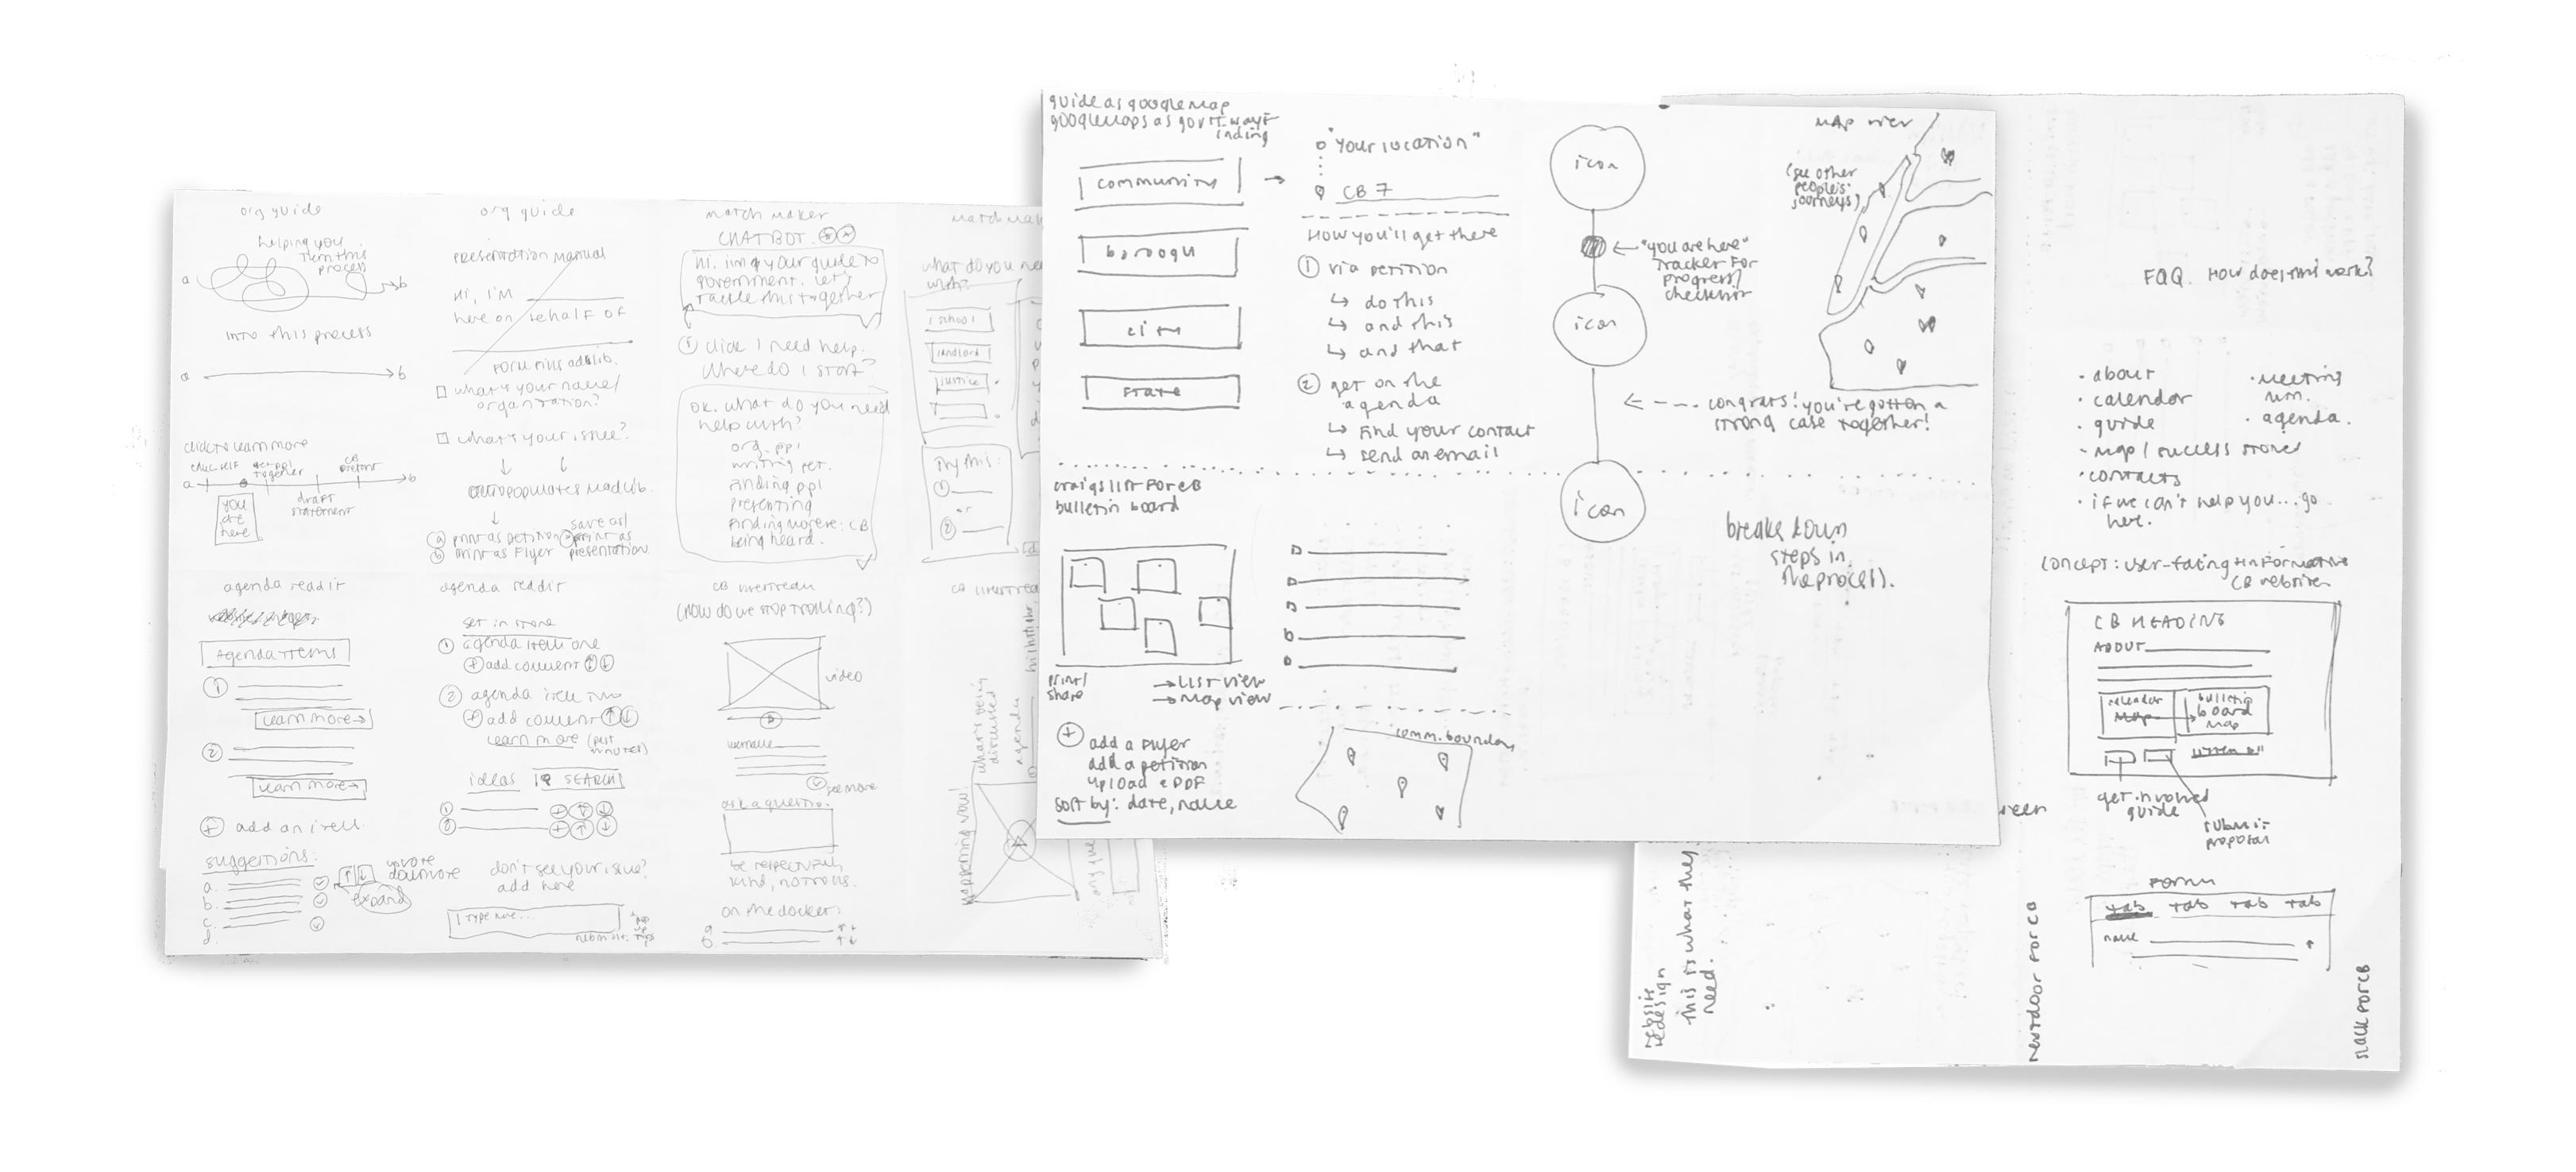 org guide
helping you
turn this
process
a
b
into this process
a
b
click to learn more
educ self
get ppl
together
CB
present
a
b
you
are
here
draft
statement
org guide
presentation manual
Hi, I'm
here on behalf of
form fills adlib.
what's your name/
organization?
what's your issue?
autopopulates madlib.
a print as petition
b print as flyer
save as/
print as
presentation
match maker
CHATBOT.
hi. i'm your guide to
government. let's
tackle this together
1 click I need help.
Where do I start?
ok. what do you need
help with?
org. ppl
writing pet.
finding ppl
presenting
finding more re: CB
being heard.
what do you need
with?
school
landlord
justice
Try this:
1
or
2
agenda reddit
Agenda items
1
learn more →
2
learn more →
+ add an item.
suggestions:
a.
b.
c.
d.
upvote
downvote
expand
agenda reddit
set in stone
1 agenda item one
+ add comment ↑ ↓
2 agenda item two
+ add comment ↑ ↓
learn more (past
minutes)
ideas
SEARCH
1
2
don't see your issue?
add here
I type here...
CB livestream
(how do we stop trolling?)
video
username
see more
ask a question.
be respectful,
kind, no trolls.
on the docket:
a
b
what's being
discussed
agenda
happening now!
guide as google map
google maps as gov't. wayf
inding
community
borough
city
state
→
"your location"
CB 7
How you'll get there
1 via petition
↳ do this
↳ and this
↳ and that
2 get on the
agenda
↳ find your contact
↳ send an email
icon
icon
icon
← "you are here"
tracker for
progress/
checklist
map view
(see other
people's
journeys)
congrats! you're gotten a
strong case together!
break down
steps in
the process.
craigslist for CB
bulletin board
print/
share
→ List view
→ Map view
+ add a flyer
add a petition
upload a PDF
sort by: date, name
comm. boundary
FAQ. How does this work?
· about
· calendar
· guide
· map / success stories
· contacts
· if we can't help you... go
here.
· meeting
min.
· agenda.
concept: user-facing + informative
CB website
CB HEADING
ABOUT
calendar
map
bulletin
board
map
get involved
guide
submit
proposal
Form
tab
tab
tab
tab
name
website
redesign
this is what they
need.
Nextdoor for CB
slack for CB